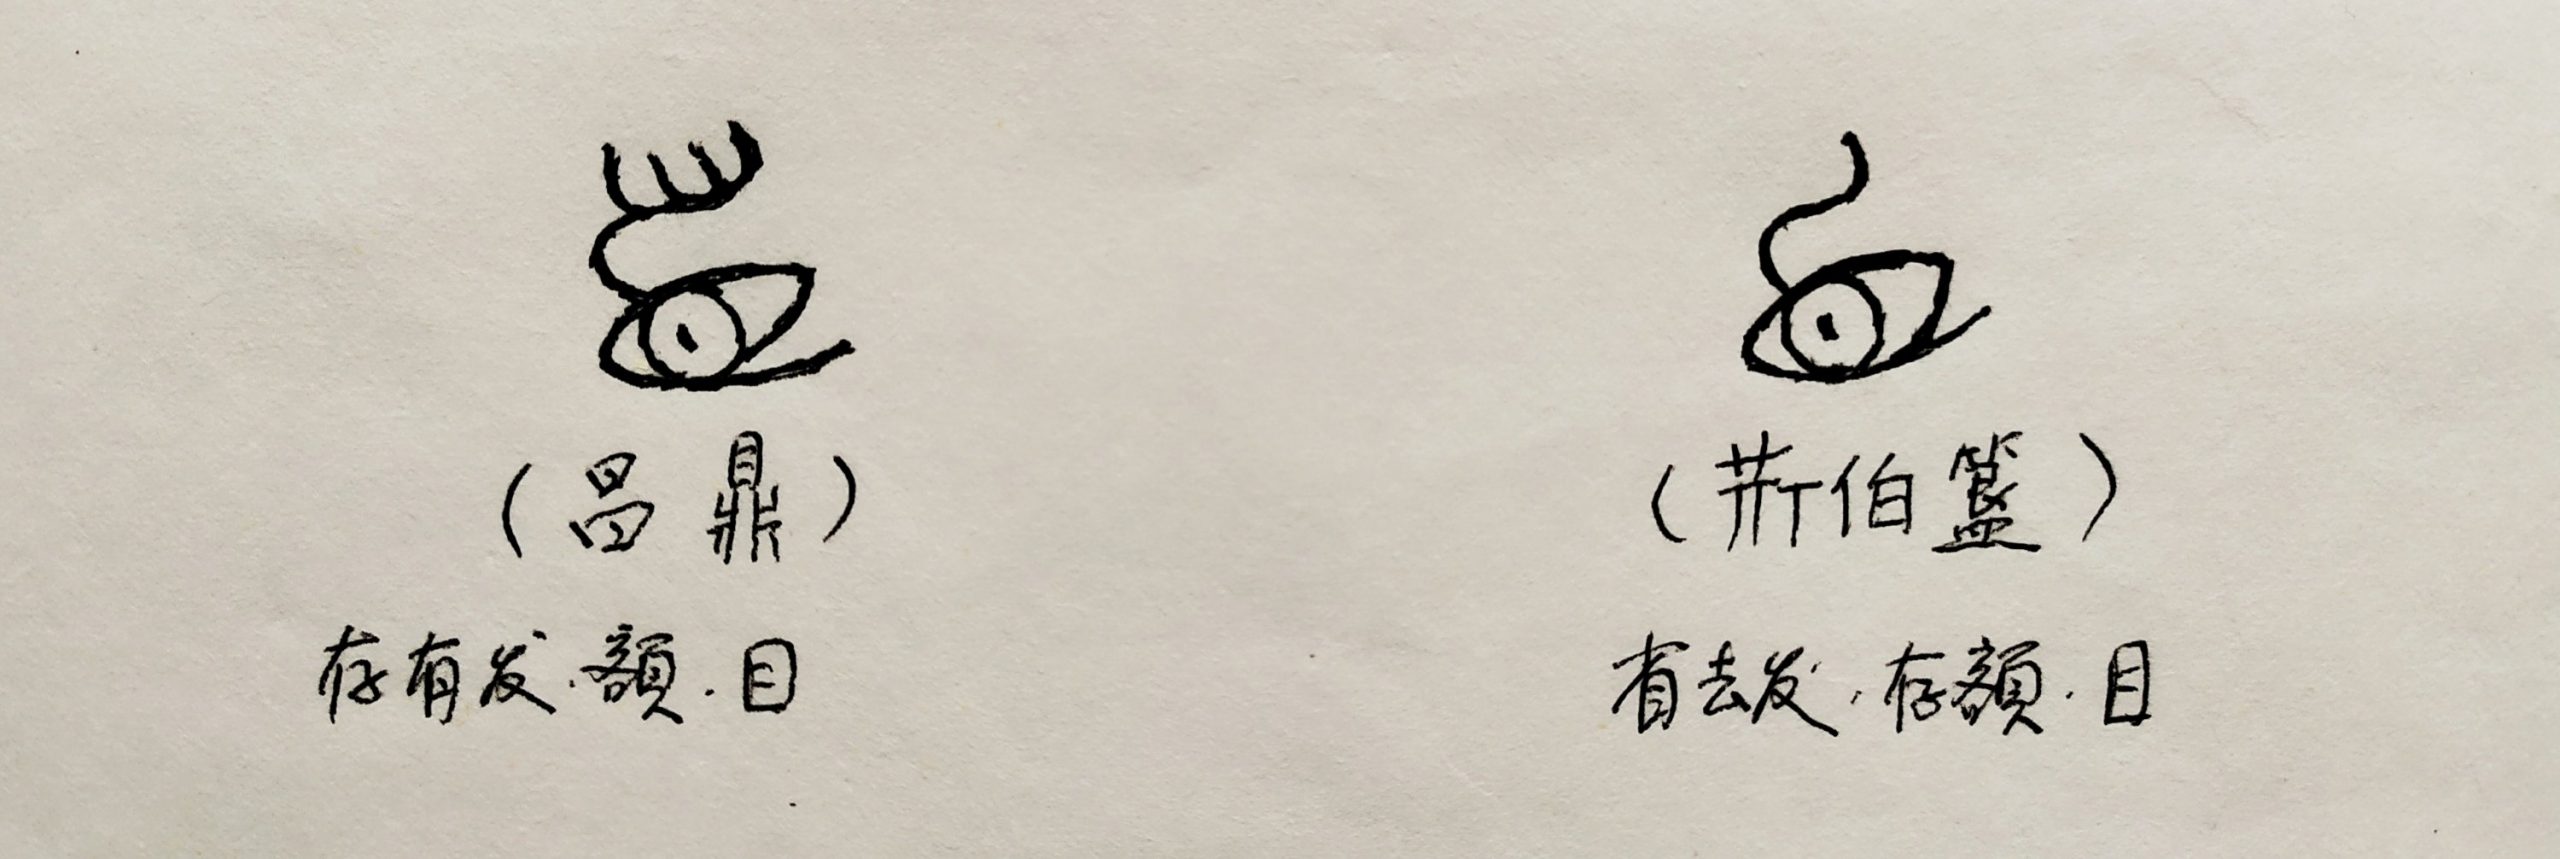 （昌鼎）
（伯簋）
存有发·額·目
省去发，存額·目